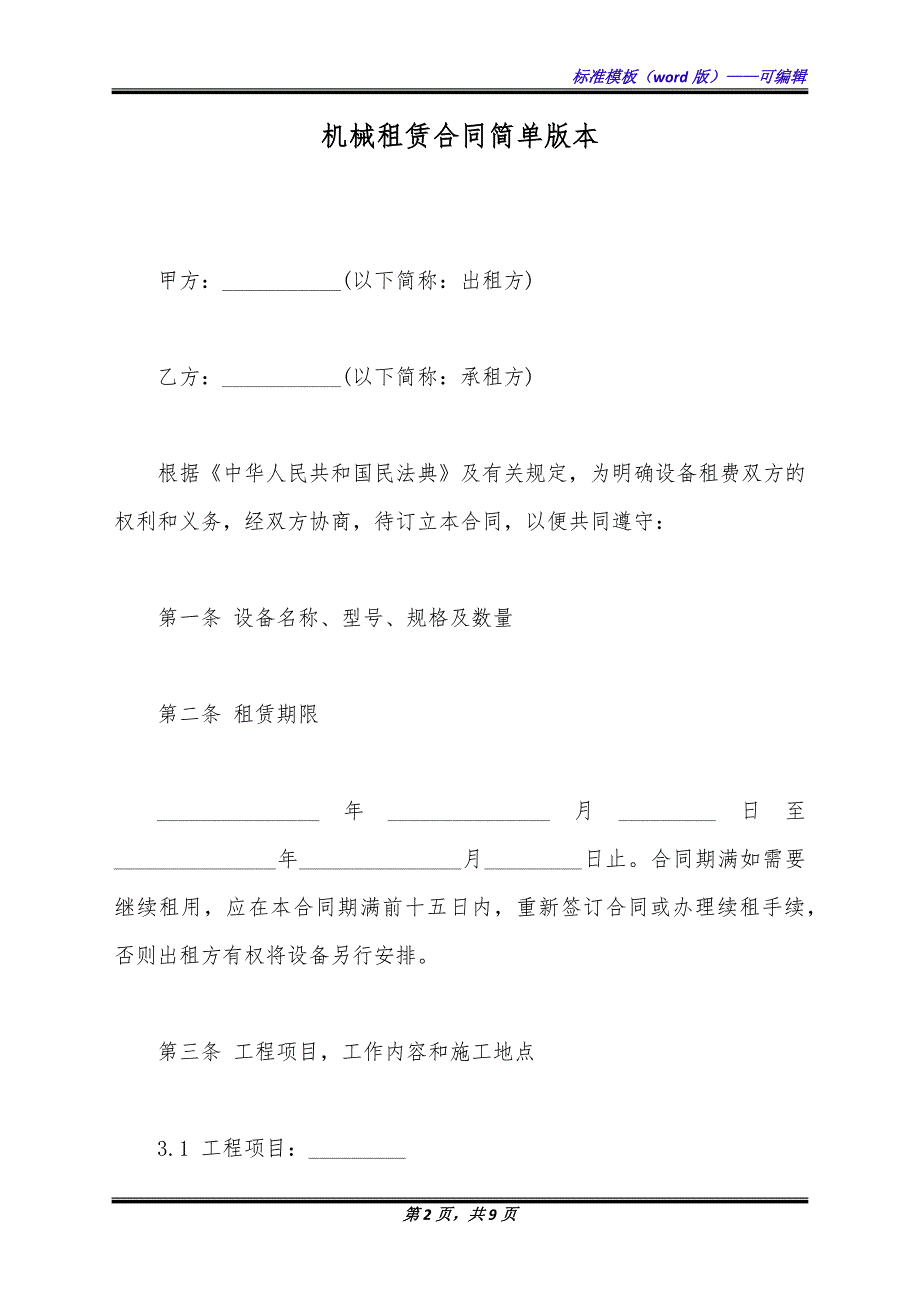 标准模板（word 版）——可编辑
机械租赁合同简单版本
甲方：___________(以下简称：出租方)
乙方：___________(以下简称：承租方)
根据《中华人民共和国民法典》及有关规定，为明确设备租费双方的
权利和义务，经双方协商，待订立本合同，以便共同遵守：
第一条 设备名称、型号、规格及数量
第二条 租赁期限
_______________ 年 _______________ 月 _________ 日 至
_______________年_______________月_________日止。合同期满如需要
继续租用，应在本合同期满前十五日内，重新签订合同或办理续租手续，
否则出租方有权将设备另行安排。
第三条 工程项目，工作内容和施工地点
3.1 工程项目：_________
第 2 页，共 9 页